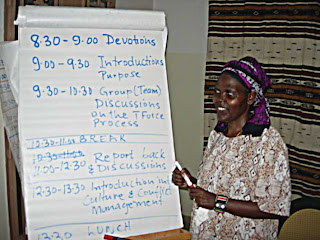 8.30 - 9.00 Devotions
9.00 - 9.30 Introductions
Purpose
9.30 - 10.30 Group (Team)
Discussions
on the T Force
Process
10.30 - 11.00 BREAK
10.30 - 11.00 Report back
11.00 - 12.30 & Discussions
12.30 - 13.30 Introduction in
Culture & Conflict
Management
13.30 LUNCH